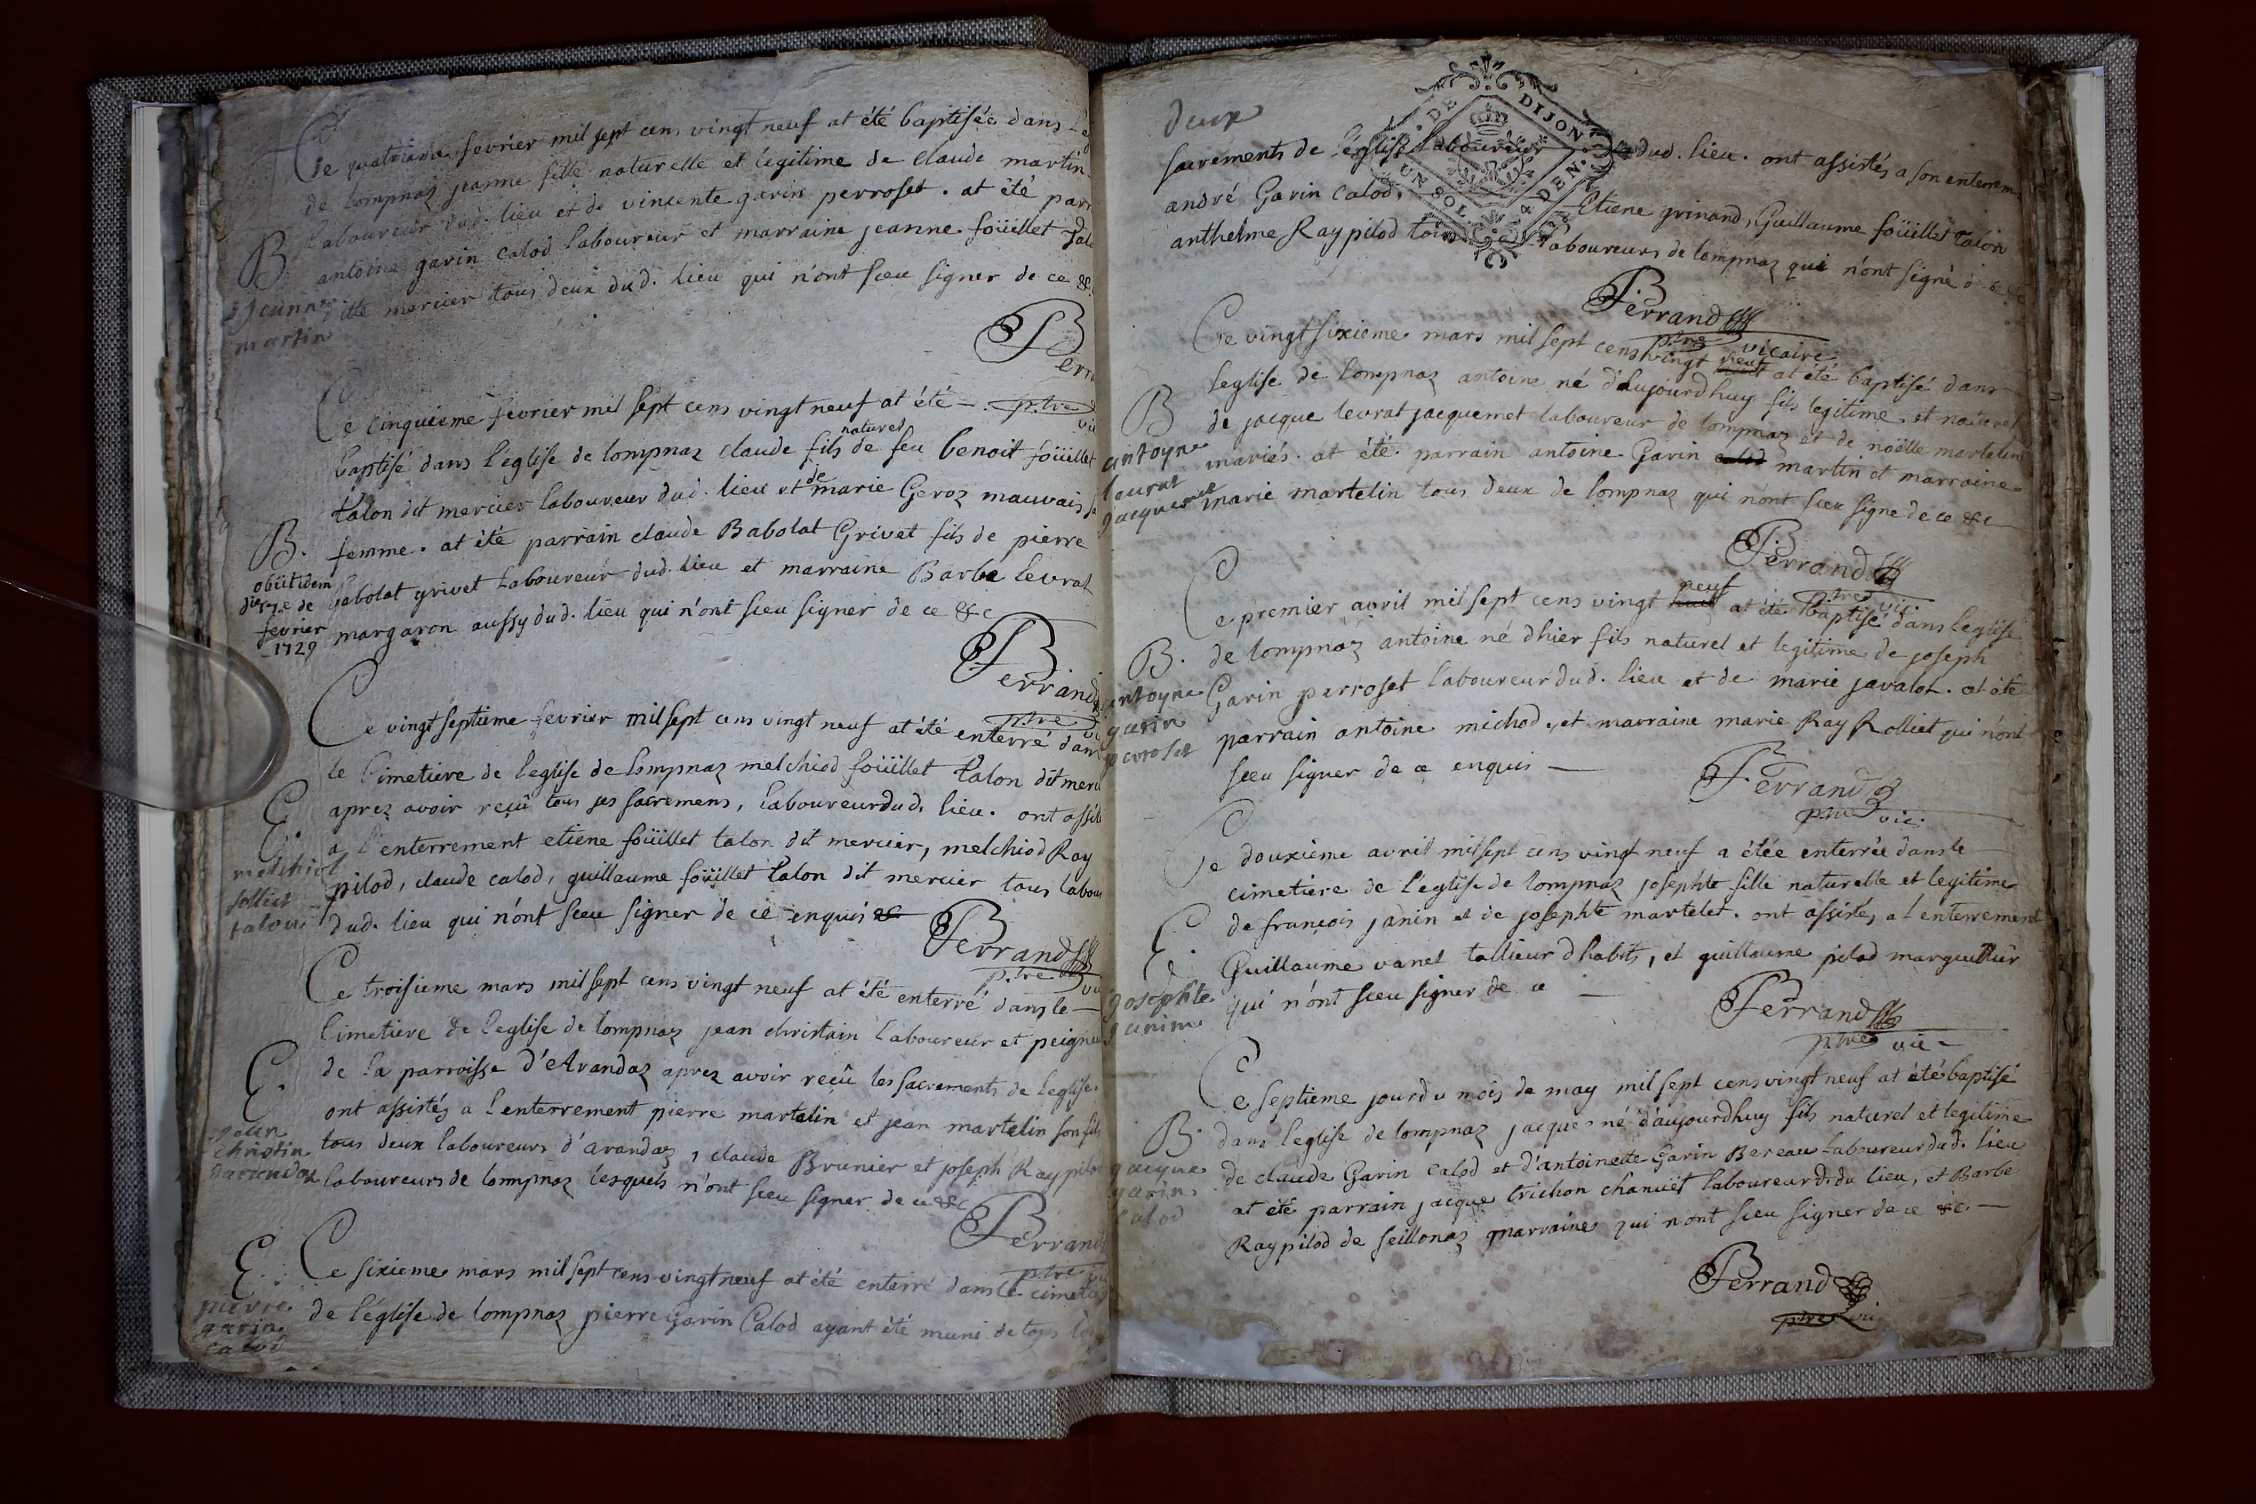 Ce quatrieme fevrier mil sept cens vingt neuf at été baptisée dans
de lompnaz jeanne fille naturelle et legitime de claude martin
laboureur dud. lieu et de vincente garin perroset. at été parr
B antoine garin calod laboureur et marraine jeanne foüillet Tal
Jeanne mercier tous deux dud. lieu qui n'ont sceu signer de ce &c
martin
Ferr
Ce cinquieme fevrier mil sept cens vingt neuf at été – ptre vic
baptisé dans l'église de lompnaz claude fils naturel de feu benoit foüillet
talon dit mercier laboureur dud. lieu et de marie Geroz mauvais sa
B. femme. at été parrain claude Babolat Grivet fils de pierre
obiit idem die 7e de fevrier 1729
babolat grivet laboureur dud. lieu et marraine Barbe levrat
margaron aussy dud. lieu qui n'ont sceu signer de ce &c
Ferrand
ptre vi
Ce vingt septieme fevrier mil sept cens vingt neuf at été enterré dans
le cimetiere de l'eglise de lompnaz melchiod foüillet talon dit merc
aprez avoir reçû tous ses sacremens, laboureur dud. lieu. ont assis
E. a l'enterrement etiene foüillet talon dit mercier, melchiod Ray
melchiot follict talon
pilod, claude calod, guillaume foüillet talon dit mercier tous labou
dud. lieu qui n'ont sceu signer de ce enquis &c
Ferrand
ptre vi
Ce troisieme mars mil sept cens vingt neuf at été enterré dans le –
cimetiere de l'eglise de lompnaz jean christain laboureur et peigneu
E. de la parroisse d'Arandaz aprez avoir reçû les sacrements de l'eglise
ont assistez a l'enterrement pierre martelin et jean martelin son fils
jean christin
tous deux laboureurs d'arandaz, claude Brunier et joseph Raypilo
laboureurs de lompnaz lesquels n'ont sceu signer de ce &c
Ferrand
ptre vi
E. Ce sixieme mars mil sept cens vingt neuf at été enterré dans le cimetie
pierre garin calod
de l'église de lompnaz pierre Garin Calod ayant été muni de tous les
deux
DE DIJON. UN SOL. 4 DEN.
sacrements de l'église laboureur dud. lieu. ont assistéz a son enterrem
andré Garin calod, Etiene grinand, Guillaume foüillet talon
anthelme Raypilod tous laboureurs de lompnaz qui n'ont signé
Ferrand
ptre vicaire
Ce vingt sixieme mars mil sept cens vingt neuf at été baptisé dans
l'eglise de lompnaz antoine né d'aujourdhuy fils legitime et naturel
B de jacque levrat jacquemet laboureur de lompnaz et de noëlle martelin
antoyne levrat jacquemet
mariés. at été parrain antoine Garin calod martin et marraine
marie martelin tous deux de lompnaz qui n'ont sceu signe de ce &c
Ferrand
ptre vic.
Ce premier avril mil sept cens vingt neuf at été baptisé dans l'eglise
B. de lompnaz antoine né dhier fils naturel et legitime de joseph
antoyne garin perroset
Garin perroset laboureur dud. lieu et de marie javalot. at été
parrain antoine michod, et marraine marie Ray Rolliet qui n'ont
sceu signer de ce enquis —
Ferrand
ptre vic.
Ce douxieme avril mil sept cens vingt neuf a étée enterrée dans le
cimetiere de l'eglise de lompnaz josephte fille naturelle et legitime
E. de françois janin et de josephte martelet. ont assistez a l'enterrement
Guillaume vanel tallieur d'habits, et guillaume pilod margullier
josephte janin
qui n'ont sceu signer de ce —
Ferrand
ptre vic
Ce septieme jour du mois de may mil sept cens vingt neuf at été baptisé
B. dans l'eglise de lompnaz jacque né d'aujourdhuy fils naturel et legitime
jacque garin calod
de claude Garin calod et d'antoinette Garin Bereau laboureur dud. lieu
at été parrain jacque trichon chanuët laboureur d. du lieu, et Barbe
Raypilod de seillonaz marraine qui n'ont sceu signer de ce &c. —
Ferrand
ptre vic